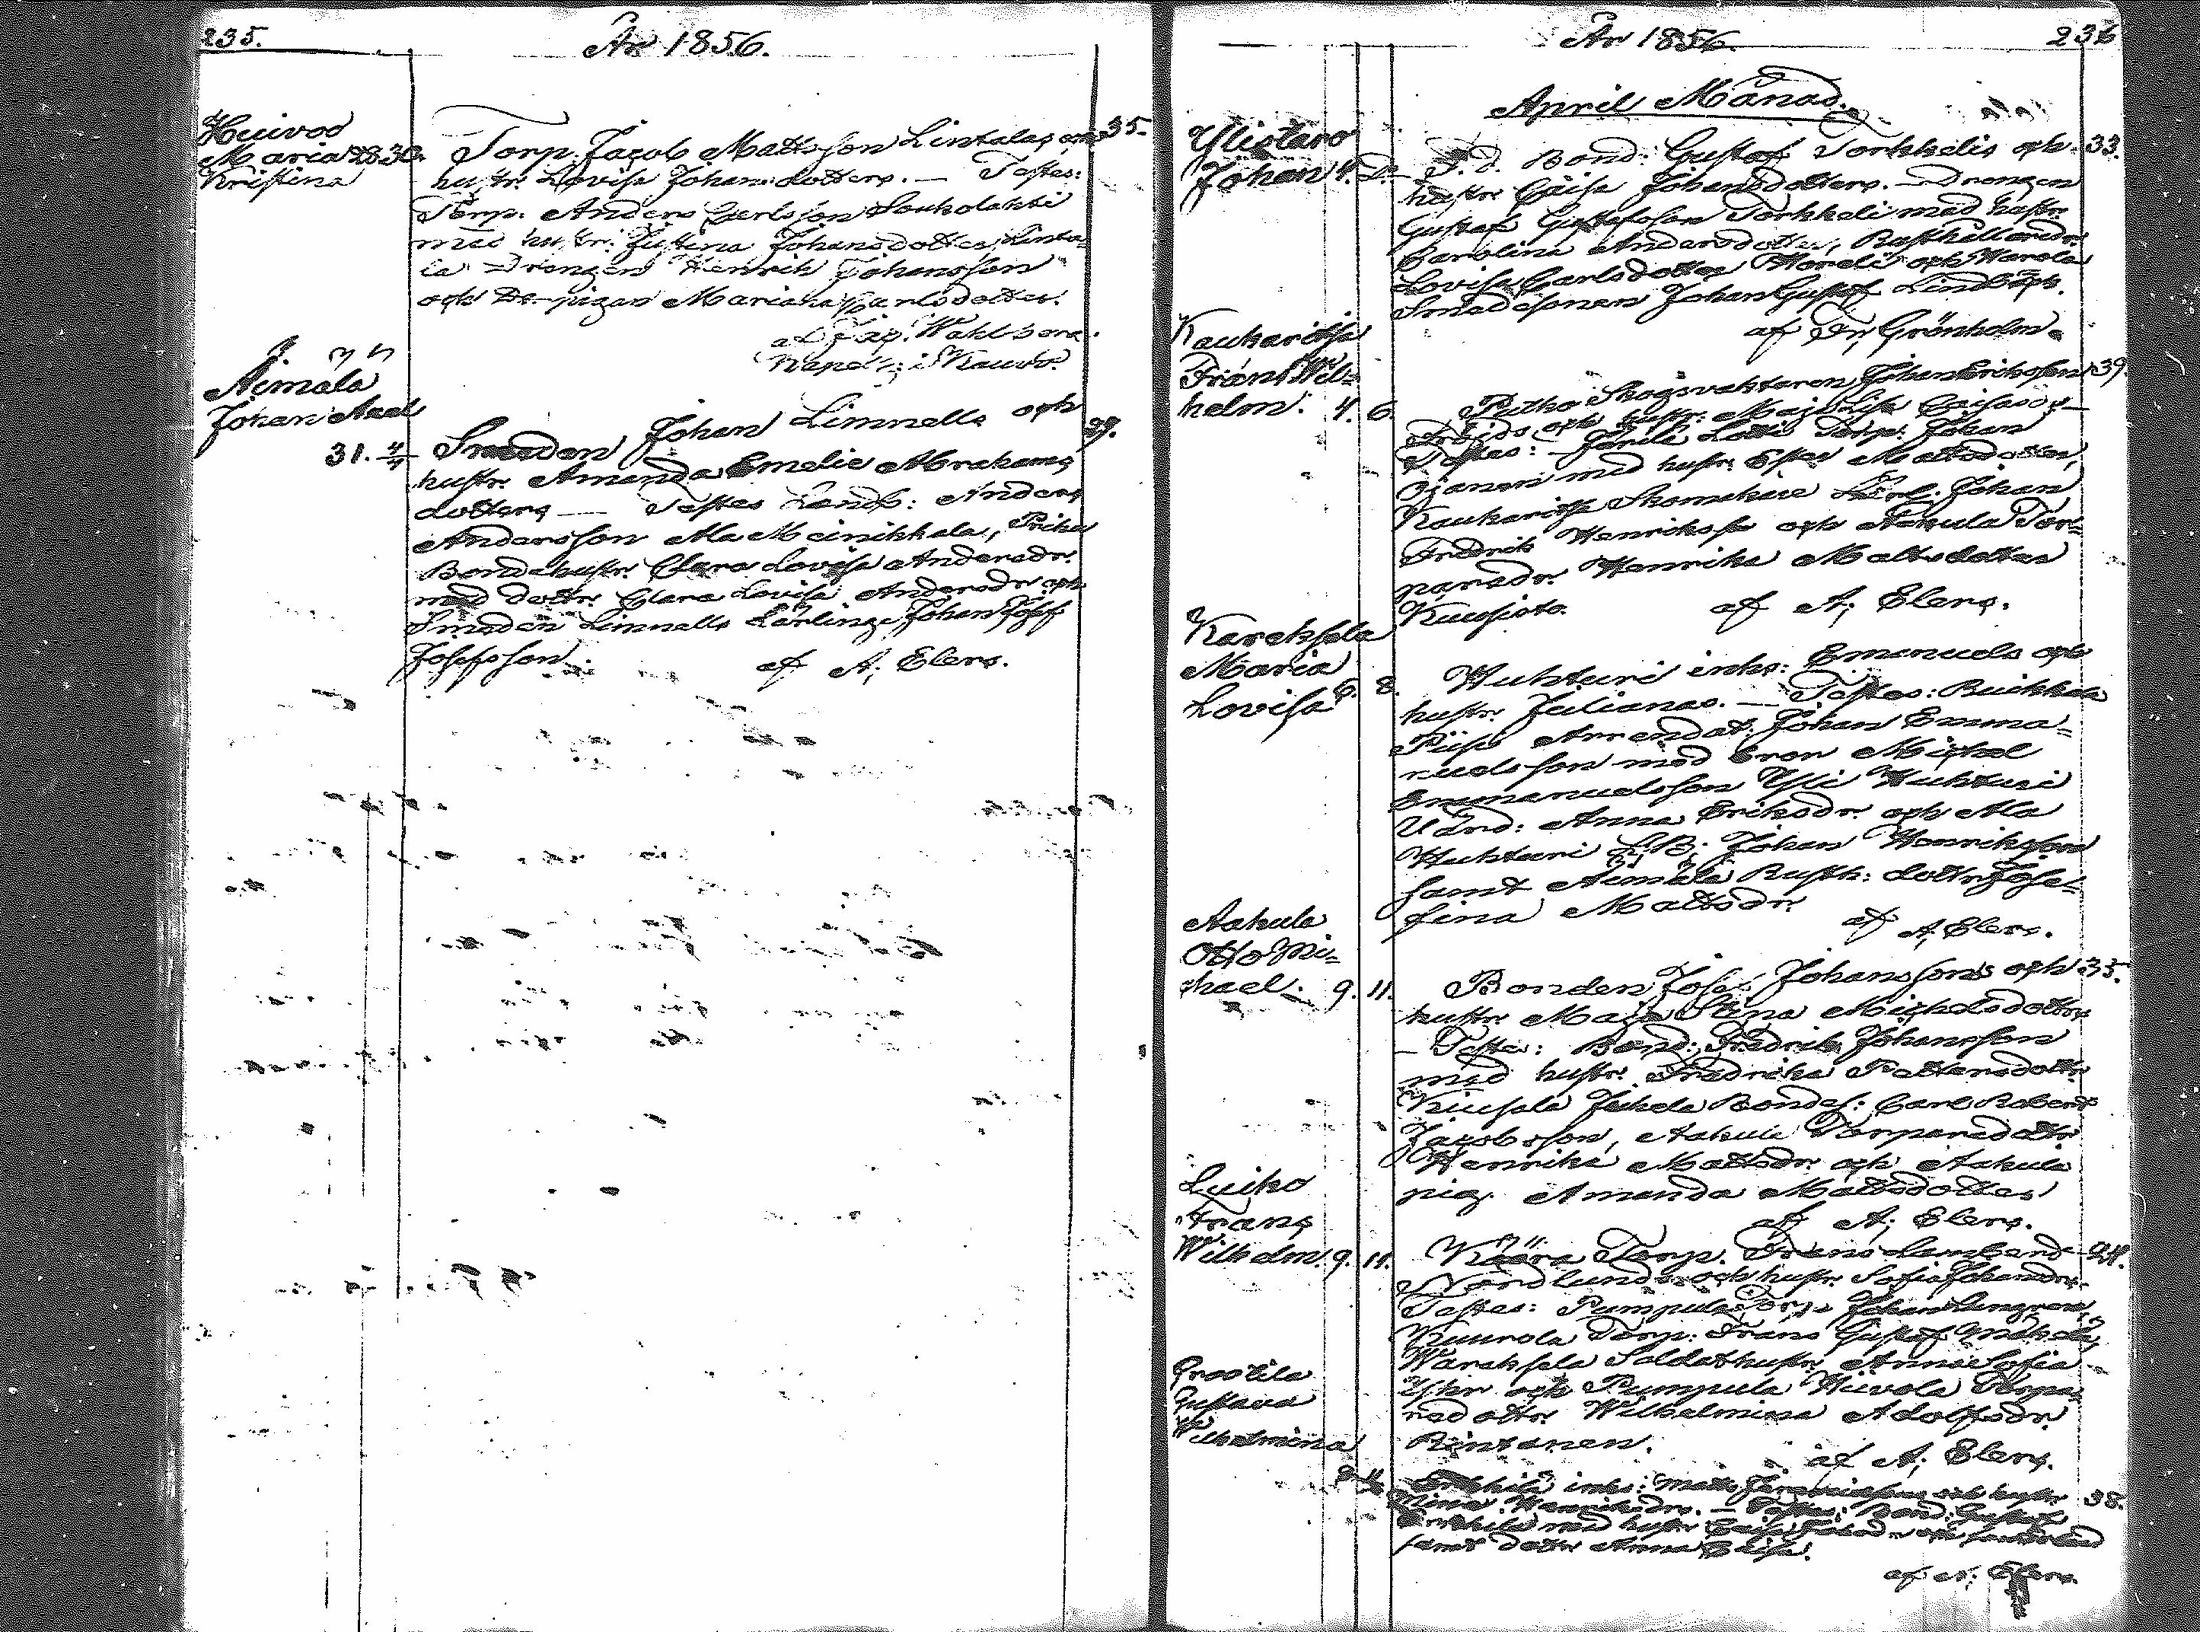 235.
År 1856.
Huivoo
Maria 28. 30.
Kristina
Torp. Jacob Mattsson Lintalas och 35.
hustr. Lovisa Johansdotters. — Testes:
Torp. Anders Carlsson Soukolahti
med hustr. Justina Johansdotter, Linta-
la Drengen Henrik Johansson
och De-pigan Mariana Carlsdotter.
af Jac. Wahlberg.
Kapell: i Kauvo.
Äimälä
Johan Axel
31. 4/4
Smeden Johan Limnells och 29.
hustr. Amanda Emelie Abrahams
dotters — Testes Landb: Anders
Andersson Ala Meinikkala,
Bondehustr. Clara Lovisa Andersdr.
med dottr. Clara Lovisa Andersdr. och
Smeden Limnells Lärlinge Johan Josef
Josefsson. af A; Elers.
År 1856. 236
April Månad.
Ylistaro
Johan 4. D:o
F. d. Bond: Gustaf Torkkelis och 33.
hustr. Caisa Johansdotters. — Drengen
Gustaf Gustafsson Torkkeli med hustr.
Carolina Andersdotter, Rusthållaredr.
Lovisa Carlsdotter och Warola
Smedssonen Johan Gustaf
af Fr; Grönholm.
Kaukaritsa
Frans Wil-
helm. 4. 6.
Putko Skogsvaktaren Johan Eriksson 39.
och hustr. Maja Lisa Caisasdr —
Testes: Torp: Johan
Ojanen med hustr. Ester Mattsdotter,
Kaukaritsa Skomakare Lärl. Johan
Fredrik Henriksson och Aakula Tor-
paredr. Henrika Mattsdotter
Kuusisto. af A; Elers.
Kareksela
Maria
Lovisa 6. 8.
Huhturi inhs: Emanuels och
hustr. Julianas. — Testes: Ruikkala
Arrendat: Johan Emma-
nuelsson med bror Michel
Emmanuelsson Yli Huhturi
Anna Eriksdr. och Ala
Huhturi LB: Johan Henriksson
samt Äimälä Rusth: dottr. Jose-
fina Mattsdr.
af A; Elers.
Aakula
Otto Mi-
chael. 9. 11.
Bonden Josef Johanssons och 35.
hustr. Maja Stina Michelsdotters
— Testes: Bond: Fredrik Johansson
med hustr. Fredrika Pettersdottr.
Jukola Bondes: Carl Robert
Jacobsson, Aakula Torparedottr.
Henrika Mattsdr. och Aakula
pig. Amanda Mattsdotter
af A; Elers.
Luiko
Frans
Wilhelm. 9. 11.
Kaära Torp. Frans Lambert 24.
Nordlunds och hustr. Sofia Johansdrs.
Testes: Pumpula Torp. Johan
Kuurola Torp: Frans Gustaf
Wareksela Soldathustr. Anna Sofia
och Pumpula Torpa-
redottr. Wilhelmina Adolfsdr.
Rintanen.
af A; Elers.
Prostila
Gustava
Wilhelmina
9. 11.
inhs: Matts och hustr. 38.
Henriksdrs. — Testes: Bond: Gustaf
med hustr. Caisa
samt dottr. Anna Lisa.
af A; Elers.